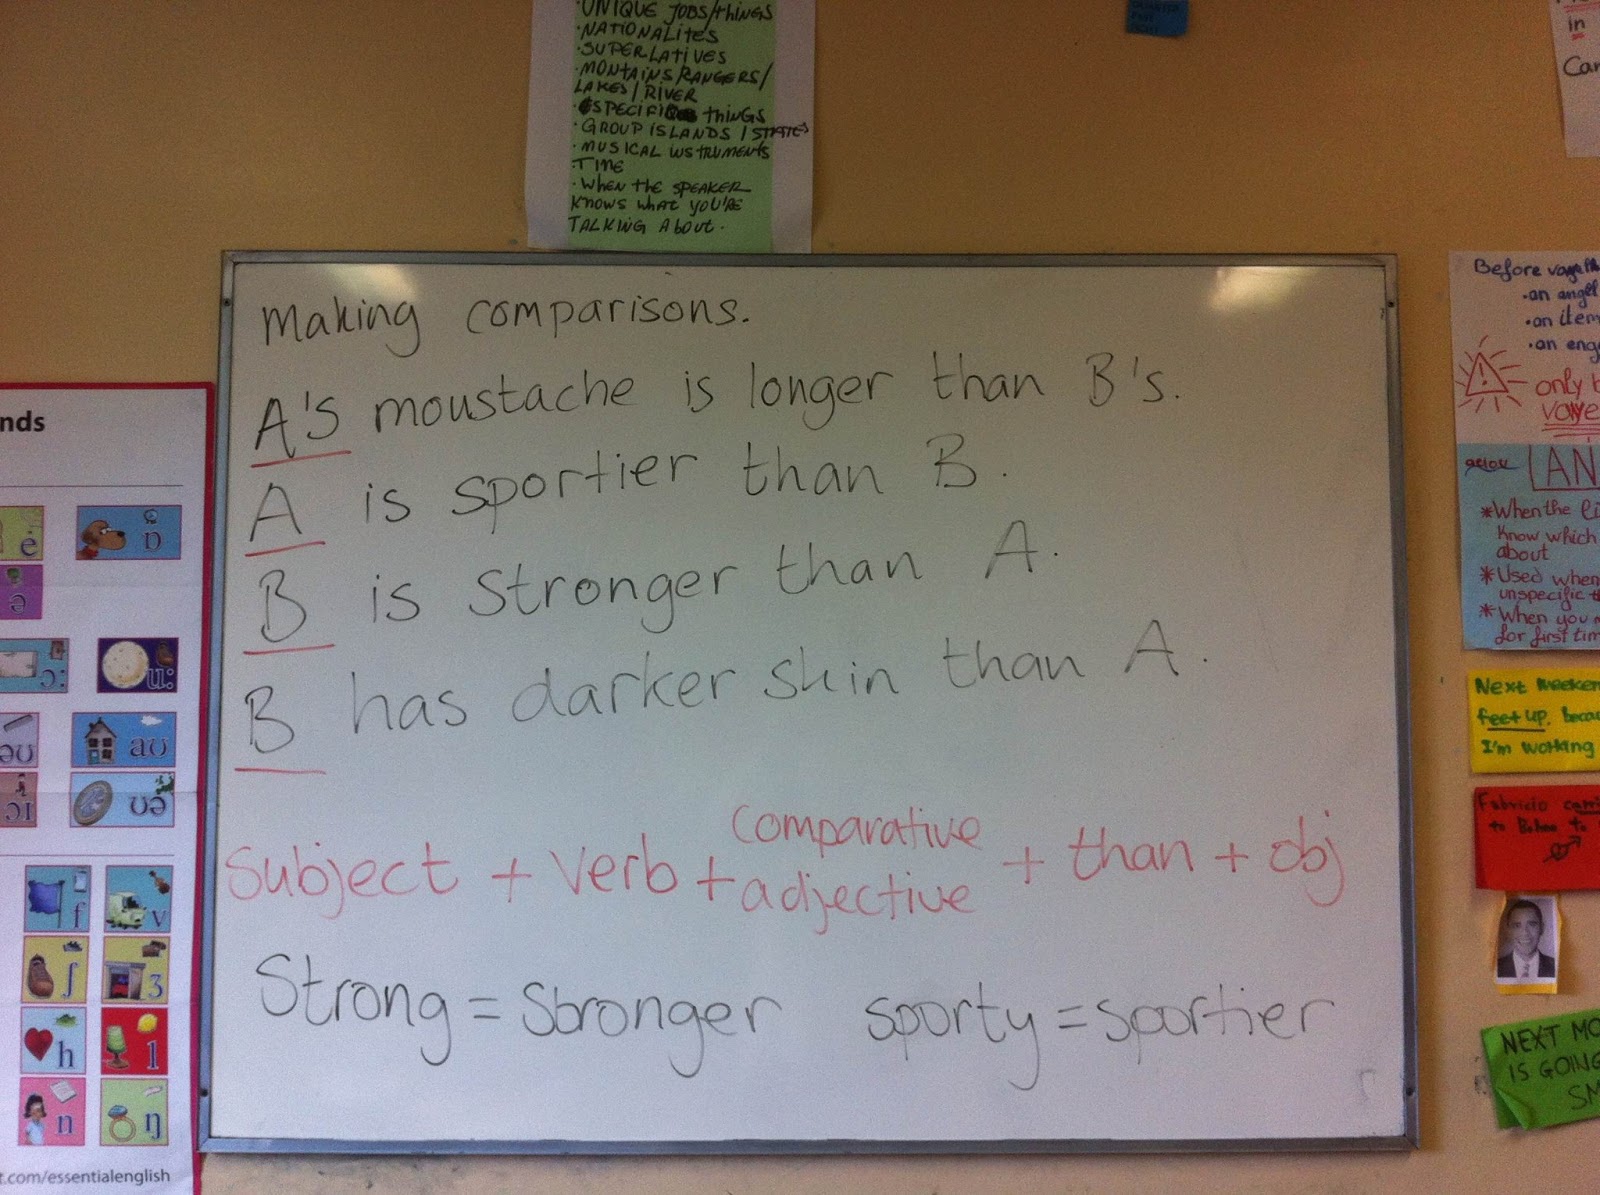 UNIQUE JOBS/THINGS
·NATIONALITES
·SUPERLATIVES
·MONTAINS/RANGERS/
LAKES/RIVER
THINGS
·GROUP ISLANDS / STATES
·MUSICAL INSTRUMENTS
·TIME
·WHEN THE SPEAKER
KNOWS WHAT YOU'RE
TALKING ABOUT.
Making comparisons.
A's moustache is longer than B's.
A is sportier than B.
B is stronger than A.
B has darker skin than A.
Subject + verb + comparative adjective + than + obj
Strong = Stronger sporty = sportier
nds
e
ɒ
ə
ɔː
uː
əʊ
aʊ
ɔɪ
ʊə
f
v
ʃ
ʒ
h
l
n
ŋ
.com/essentialenglish
in
Before
·an angel
·an item
·an
only
AN
*When the
Know which
about
*Used when
unspecific
*When you
for first
Next
feet up.
I'm working
Fabricio
to
NEXT
IS GOING